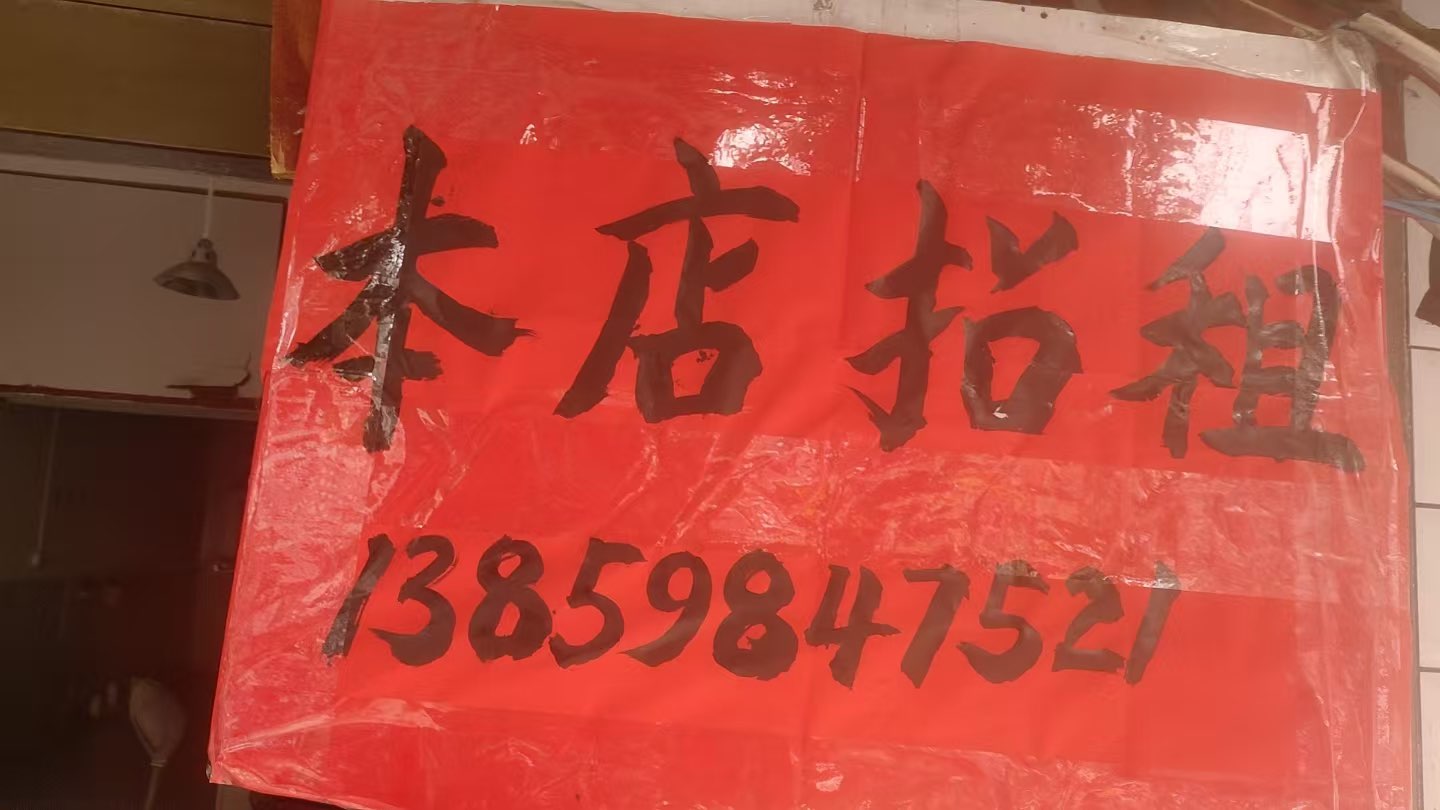 本店招租
13859847521